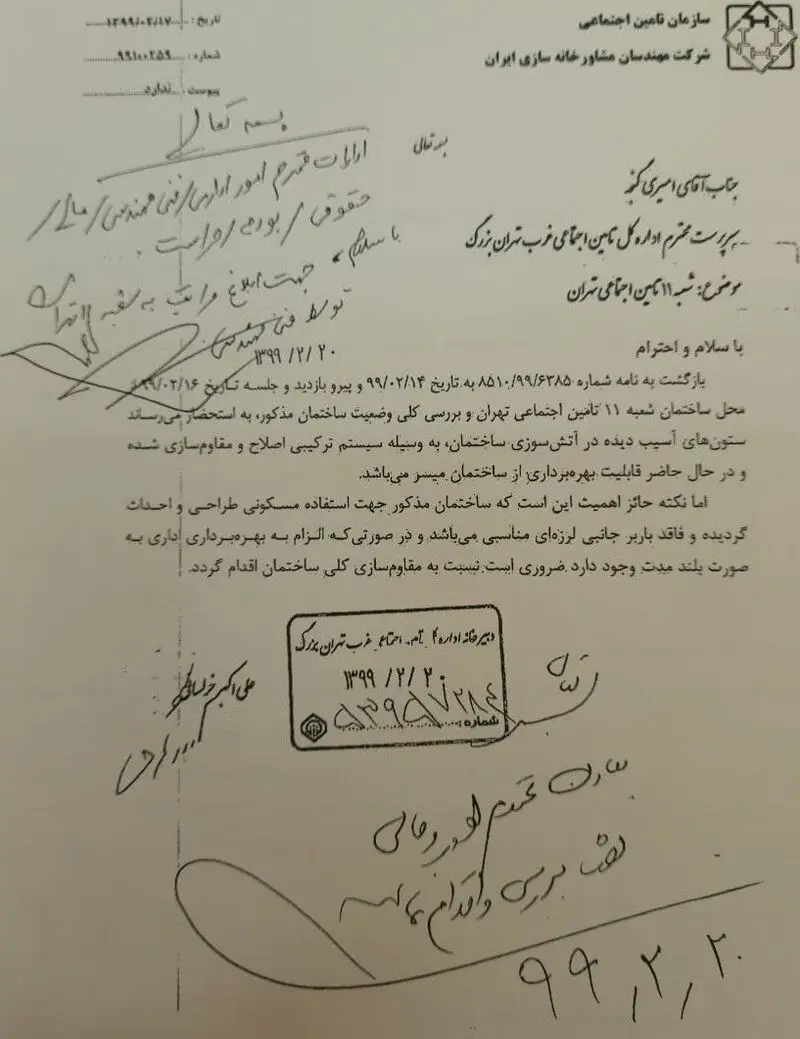 سازمان تامین اجتماعی
شرکت مهندسان مشاور خانه سازی ایران
تاریخ: ۱۳۹۹/۰۲/۱۷
شماره: ۹۹۱۰۰۲۵۹
پیوست: ندارد
بسمه تعالی
جناب آقای امیری گنجه
سرپرست محترم اداره کل تامین اجتماعی غرب تهران بزرگ
موضوع: شعبه ۱۱ تامین اجتماعی تهران
بسمه تعالی
ادارات محترم امور اداری/فنی مهندسی/مالی/
حقوقی/بودجه/حراست
با سلام، جهت ابلاغ مراتب به شعبه ۱۱ تهران
توسط فنی مهندسی
۱۳۹۹/۲/۲۰
با سلام و احترام
بازگشت به نامه شماره ۸۵۱۰/۹۹/۶۳۸۵ به تاریخ ۹۹/۰۲/۱۴ و پیرو بازدید و جلسه تاریخ ۹۹/۰۲/۱۶ از
محل ساختمان شعبه ۱۱ تامین اجتماعی تهران و بررسی کلی وضعیت ساختمان مذکور، به استحضار می‌رساند
ستون‌های آسیب دیده در آتش‌سوزی ساختمان، به وسیله سیستم ترکیبی اصلاح و مقاوم‌سازی شده
و در حال حاضر قابلیت بهره‌برداری از ساختمان میسر می‌باشد.
اما نکته حائز اهمیت این است که ساختمان مذکور جهت استفاده مسکونی طراحی و احداث
گردیده و فاقد باربر جانبی لرزه‌ای مناسبی می‌باشد و در صورتی‌که الزام به بهره‌برداری اداری به
صورت بلند مدت وجود دارد ضروری است نسبت به مقاوم‌سازی کلی ساختمان اقدام گردد.
دبیرخانه اداره کل تامین اجتماعی غرب تهران بزرگ
۱۳۹۹/۲/۲۰
شماره:
علی اکبر
معاون محترم امور
لطفا بررسی و اقدام نمایید
۹۹/۲/۲۰